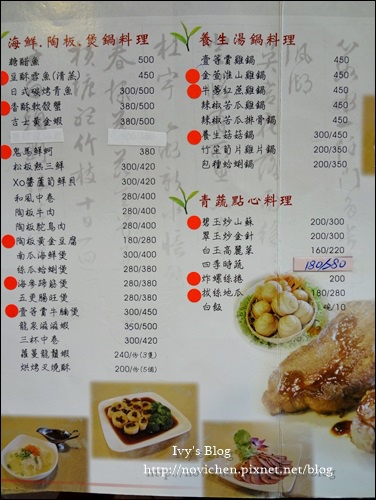 海鮮.陶板.煲鍋料理
糖醋魚 500
豆酥雪魚(清蒸) 450
日式碳烤青魚 300/500
香酥軟殼蟹 380/500
吉士黃金蝦 380/500
鬼馬鮮蚵 380
松板燒三鮮 300/420
XO醬蘆筍鮮貝 300/420
和風中卷 300/420
陶板牛肉 300/420
陶板鴕鳥肉 300/420
陶板黃金豆腐 180/280
南瓜海鮮煲 300/420
絲瓜蛤蜊煲 280/380
海參蹄筋煲 280/380
五更腸旺煲 280/380
壹等賞牛腩煲 300/450
龍泉滋滋蝦 350/500
三杯中卷 300/420
羅蔓龍鬚蝦 240/份(3隻)
烘烤叉燒酥 200/份(5個)
養生湯鍋料理
壹等賞雞鍋 450
金菇淮山雞鍋 450
牛蒡紅棗雞鍋 450
辣椒苦瓜雞鍋 450
辣椒苦瓜排骨鍋 450
養生菇菇鍋 300/500
竹笙筍片雞片鍋 300/500
包種蛤蜊鍋 300/500
青蔬點心料理
碧玉炒山蘇 200/300
翠玉炒金針 200/300
白玉高麗菜 160/220
四季時蔬 180/280
炸螺絲捲 200
拔絲地瓜 180/280
白飯 碗/10
Ivy's Blog
http://novichen.pixnet.net/blog